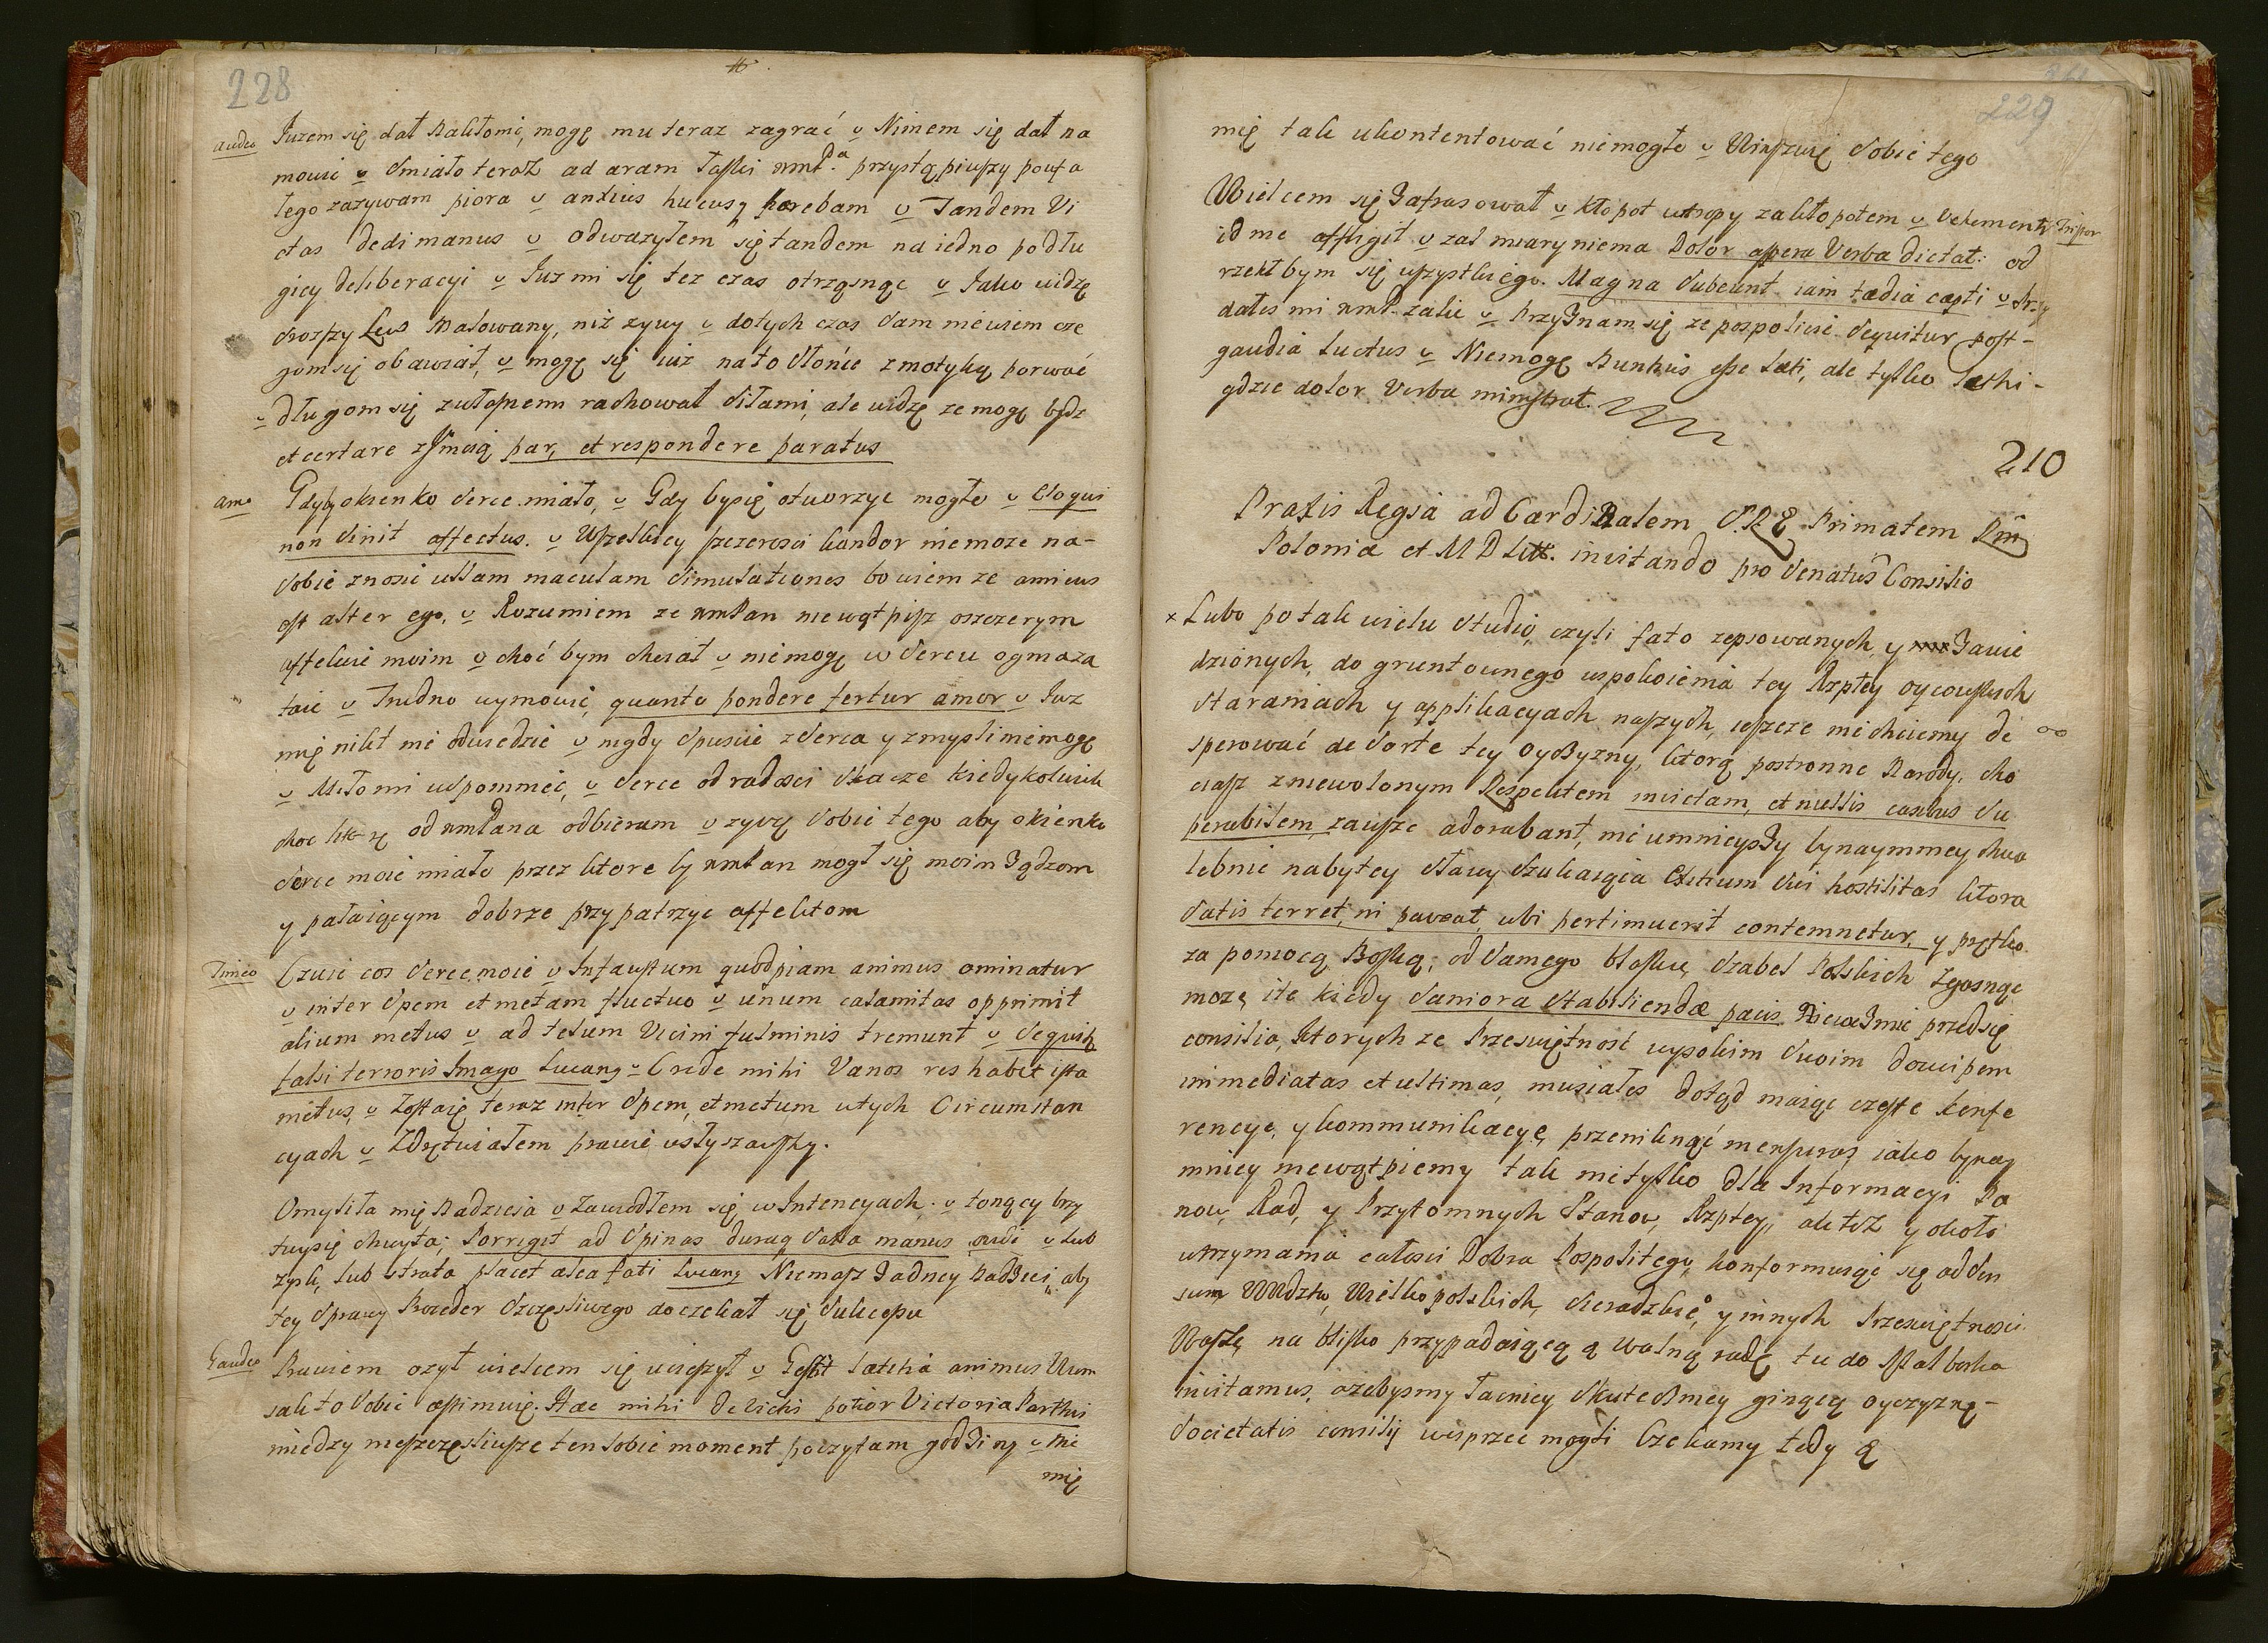 228
audeo Iuzem się dał nakłonić, mogę mu teraz zagrać v Nimem się dał na
mowić v Smiało teraz ad aram łaski wmPa. przystą piwszy poufa
łego zazywam piora v anxius hucusq hærebam v Tandem Vi
ctas dedi manus v odwazyłem się tandem na iedno po dłu
giey deliberacyi v Iuz mi się tez czas otrząsnąc v Iako widzę
srozszy Lew malowany, niż zywy v dotych czas sam niewiem cze
gom się obawiał, v mogę się iuż na to słońce z motyką porwać
v długom się z własnemi rachował siłami, ale widzę ze mogę bydz
et certare par, et respondere paratus
amo Gdyby okienko serce miało, v Gdy bysię otworzyc mogło v Eloqui
non sinit affectus. v Wszelkiey szczerosci kandor niemoze na-
sobie znosić ullam maculam simulationes bowiem ze amicus
est alter ego, v Rozumiem ze wmPan niewątpisz oszczerym
affekcie moim v choć bym chciał v niemogę w sercu ogniaza
taić v Trudno wymowić, quanto pondere fertur amor v Iuz
mię nikt nie odwiedzie v nigdy spuscić z serca y z mysli niemogę
v Miło mi wspomnieć, v serce od radosci skacze kiedykolwiek
choc od wmPana odbieram v zyczę sobie tego aby okienko
serce moie miało przez ktore by wmPan mogł się moim Ządzom
y pałaiącym dobrze przy patrzyc affektom
Timeo Czuie cos serce moie v Infaustum quodpiam animus ominatur
v inter spem et metam fluctuo v unum calamitas opprimit
alium metus v ad telum Vicini fulminis tremunt v sequitz
falsi terroris Imago Lucanq v Crede mihi Vanos res habet ista
metus, v Zostaię teraz inter spem, et metum w tych Circumstan
cyach v Zdrętwiałem prawie usłyszawszy.
Omyliła mię nadzieia v Zawiodłem się w Intencyach. v tonący brzy
twysię chwyta; Porrigit ad spinas duraq saxa manus v Lub
zysk, lub strata placet alea fati Lucanq Niemasz Zadney nadziei, aby
tey sprawy Proceder szczęsliwego doczekał się sukcepu
Gaudeo Prawiem ozył wielcem się ucieszył v Gestit lætitia animus Wiem
iak to sobie æstimuię. Hæc mihi devictis potior Victoria Parthis
miedzy nieszczęsliwsze ten sobie moment poczytam godzinę v nic
mię
229
mię tak ukontentować niemogło v Winszuię sobie tego
Wielcem się Zafrasował v kłopot wstępy za kłopotem v Vehementer
id me affligit v zal miary niema Dolor aspera Verba dictat. od
rzekł bym się wszystkiego. Magna subeunt iam tædia cæpti v Przy
dałes mi wmP. zalu v Przyznam się ze pospolicie sequitur post-
gaudia luctus v Niemogę nunkus esse læti, ale tylko læthi-
gdzie dolor Verba ministrat.
210
Praxis Regia ad Cardinalem S.R.E. Primatem
Poloniæ et M D Litt. invitando pro senatus Consilio
x Lubo po tak wielu studio, czyli fato zepsowanych, y Zawie
dzionych, do gruntownego uspokoienia tey Rzpltey oycowskich
staraniach y applikacyach naszych, ieszcze nie chciemy de
sperować de sorte tey oyczyzny, ktorą postronne Narody, cho
ciasz zniewolonym Respektem invictam, et nullis casibus su
perabilem zawsze adorabant, nie umnieyszy bynaymniey chwa
lebnie nabytey sławy szukaiąca Exitium sui hostilitas ktora
satis terret, ni paveat, ubi pertimuerit contemnetur, y prętko
za pomocą Boską, od samego blasku szabel Polskich zgasnąc
może ile kiedy saniora stabiliendæ pacis przedsię
consilia, ktorych ze Przeswiętność wysokim swoim dowcipem
immediatas et ultimas, musiałes dotąd maiąc częste konfe
rencye, y kommunikacyę, przeniknąć mensuras iako bynay
mniey niewątpiemy tak nietylko dla Informacyi Pa
now, Rad, y Przytomnych Stanow, Rzptey, ale tez y około
utrzymania całosci Dobra Pospolitego, konformuiąc się ad sen
sum Wdztw, Wielkopolskich, sieradzkie, y innych Przeswiętnosci
Waszę na blisko przypadaiącą walną radę tu do Malborka
invitamus, ażebysmy łacniey skuteczniey ginącą oyczyznę-
societatis consilij wesprzec mogli Czekamy tedy